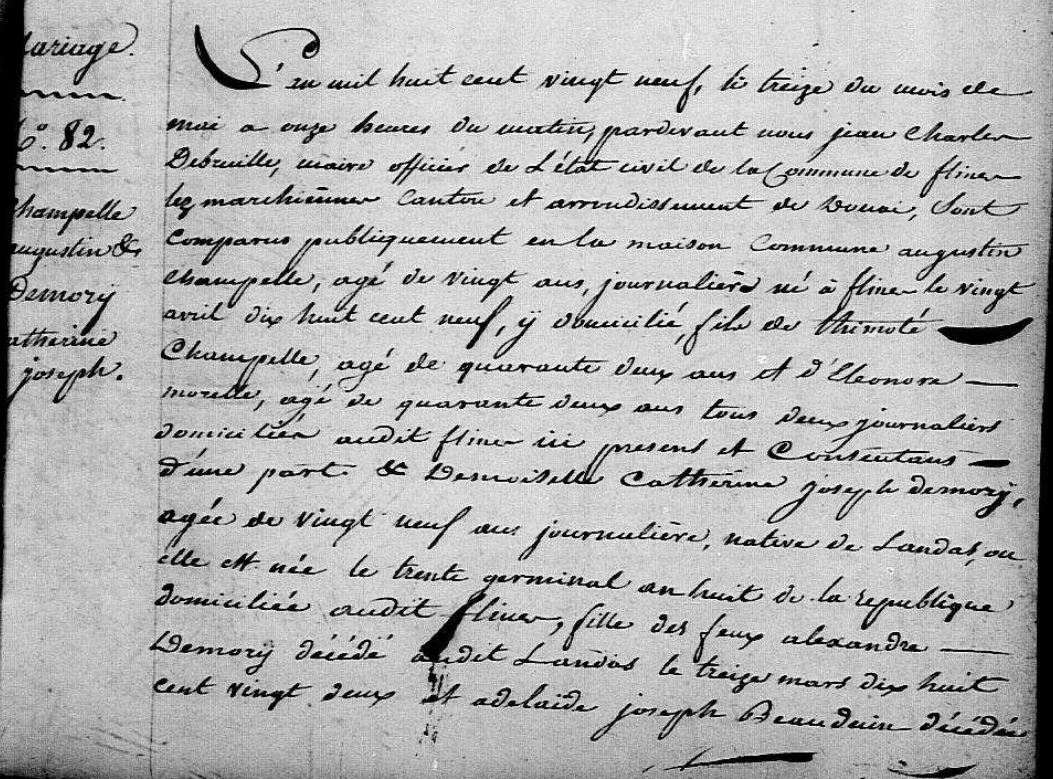 Mariage.
N.° 82.
Champelle
augustin &
Demorÿ
catherine
joseph.
L'en mil huit cent vingt neuf, le treize du mois de
mai a onze heures du matin, pardevant nous jean Charles
Debreuille, maire officier de L'état civil de la Commune de flines
lez marchiennes Canton et arrondissement de Douai, Sont
Comparus publiquement en la maison Commune augustin
Champelle, agé de vingt ans, journaliers né à flines le vingt
avril dix huit cent neuf, ÿ domicilié, fils de thimoté
Champelle, agé de quarante deux ans et d'Eleonore
morelle, agé de quarante deux ans tous deux journaliers
domiciliés audit flines ici present et Consentans
d'une part & Demoiselle Catherine joseph demorÿ,
agée de vingt neuf ans journalière, native de Landas, ou
elle est née le trente germinal an huit de la republique
domiciliée audit flines, fille des feux alexandre
Demorÿ décédé audit Landas le treize mars dix huit
cent vingt deux et adelaide joseph Beauduin décédée